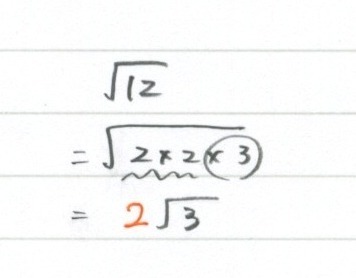 √12
= √2 × 2 × 3
= 2√3